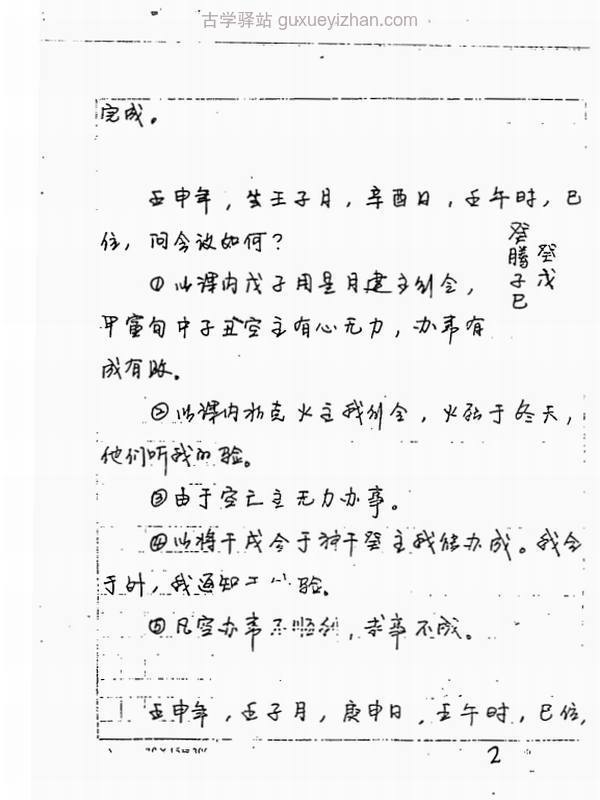 古学驿站 guxueyizhan.com
完成。
壬申年，生壬子月，辛酉日，壬午时，巳
位，问会议如何？
癸 癸
腾 戊
子
巳
①以课内戊子用是月建主创会，
甲寅旬中子丑空主有心无力，办事有
成有败。
②以课内水克火主我创会，火弱于冬天，
他们听我的验。
③由于空亡主无力办事。
④以将干戊合于神干癸主我能办成。我会
于外，我通知 验。
⑤凡空办事不顺利，求事不成。
壬申年，壬子月，庚申日，壬午时，巳位，
2